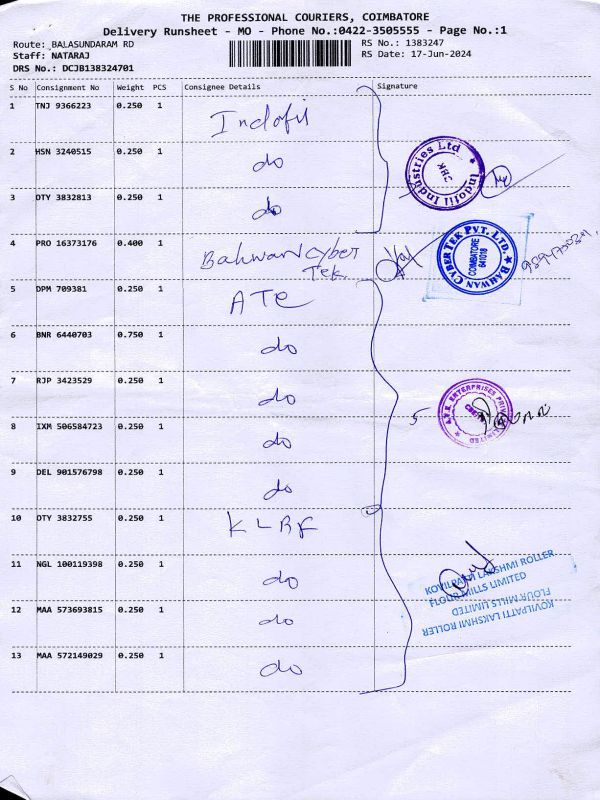 THE PROFESSIONAL COURIERS, COIMBATORE
Delivery Runsheet - MO - Phone No.:0422-3505555 - Page No.:1
Route: BALASUNDARAM RD RS No.: 1383247
Staff: NATARAJ RS Date: 17-Jun-2024
DRS No.: DCJB138324701
S No Consignment No Weight PCS Consignee Details Signature
1 TNJ 9366223 0.250 1 Indofil
2 HSN 3240515 0.250 1 do
Indofil Industries Ltd
CBK
3 DTY 3832813 0.250 1 do
4 PRO 16373176 0.400 1 Bahwan Cyber
Tek
BAHWAN CYBER TEK PVT. LTD.
COIMBATORE
641018
5 DPM 709381 0.250 1 ATE
6 BNR 6440703 0.750 1 do
7 RJP 3423529 0.250 1 do
5
A.T.E. ENTERPRISES PRIVATE LIMITED
8 IXM 506584723 0.250 1 do
9 DEL 901576798 0.250 1 do
10 DTY 3832755 0.250 1 KLRF
11 NGL 100119398 0.250 1 do
KOVILPATTI LAKSHMI ROLLER
FLOUR MILLS LIMITED
KOVILPATTI LAKSHMI ROLLER
FLOUR MILLS LIMITED
12 MAA 573693815 0.250 1 do
13 MAA 572149029 0.250 1 do